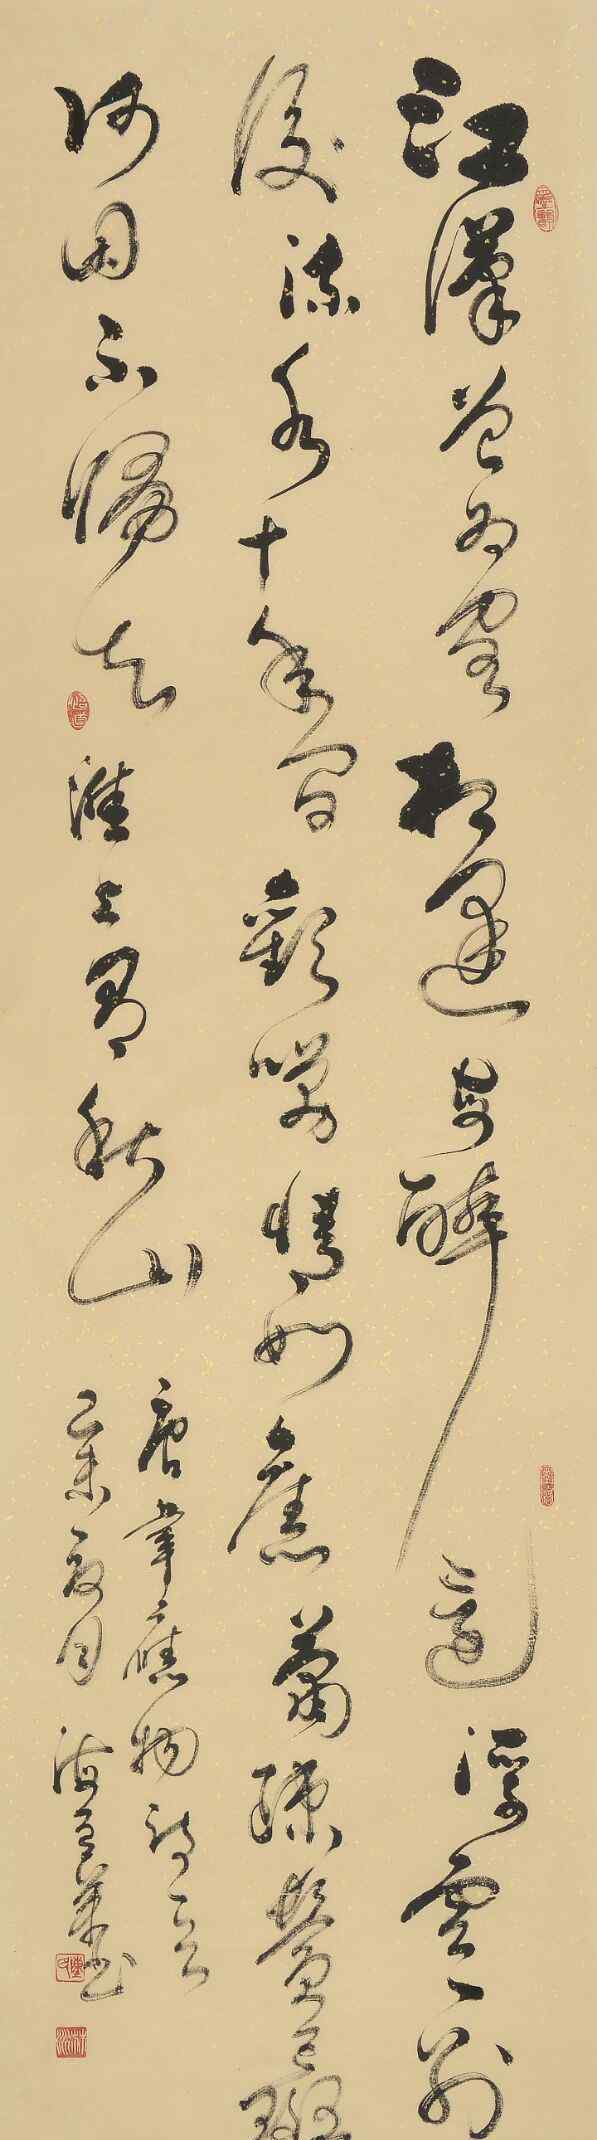 江漢曾為客相逢每醉還浮雲一別
後流水十年間歡笑情如舊蕭疏鬢已斑
何因不歸去淮上有秋山
唐韋應物詩一首
乙未夏月海書